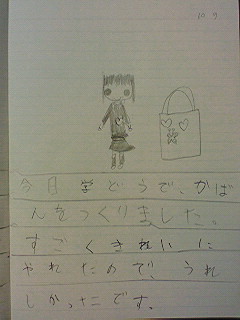 10 9
今日学どうで、かば
んをつくりました。
すごくきれいに
やれたので、うれ
しかったです。